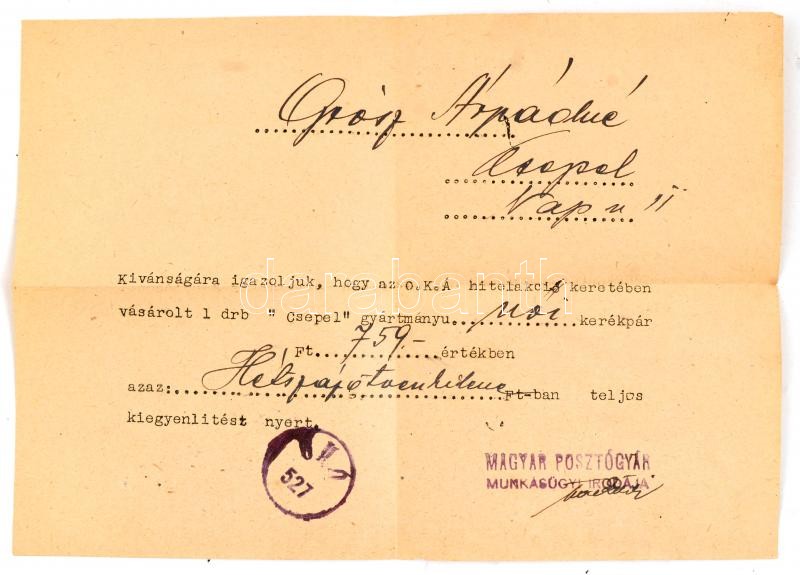 Grósz Árpádné
Csepel
Nap u 11
Kivánságára igazoljuk, hogy az O.K.Á hitelakció keretében
vásárolt 1 drb " Csepel" gyártmányu női kerékpár
Ft. 759.- értékben
azaz: Hétszázötvenkilenc Ft-ban teljes
kiegyenlitést nyert.
527
MAGYAR POSZTÓGYÁR
MUNKÁSÜGYI IRODÁJA
darabanth